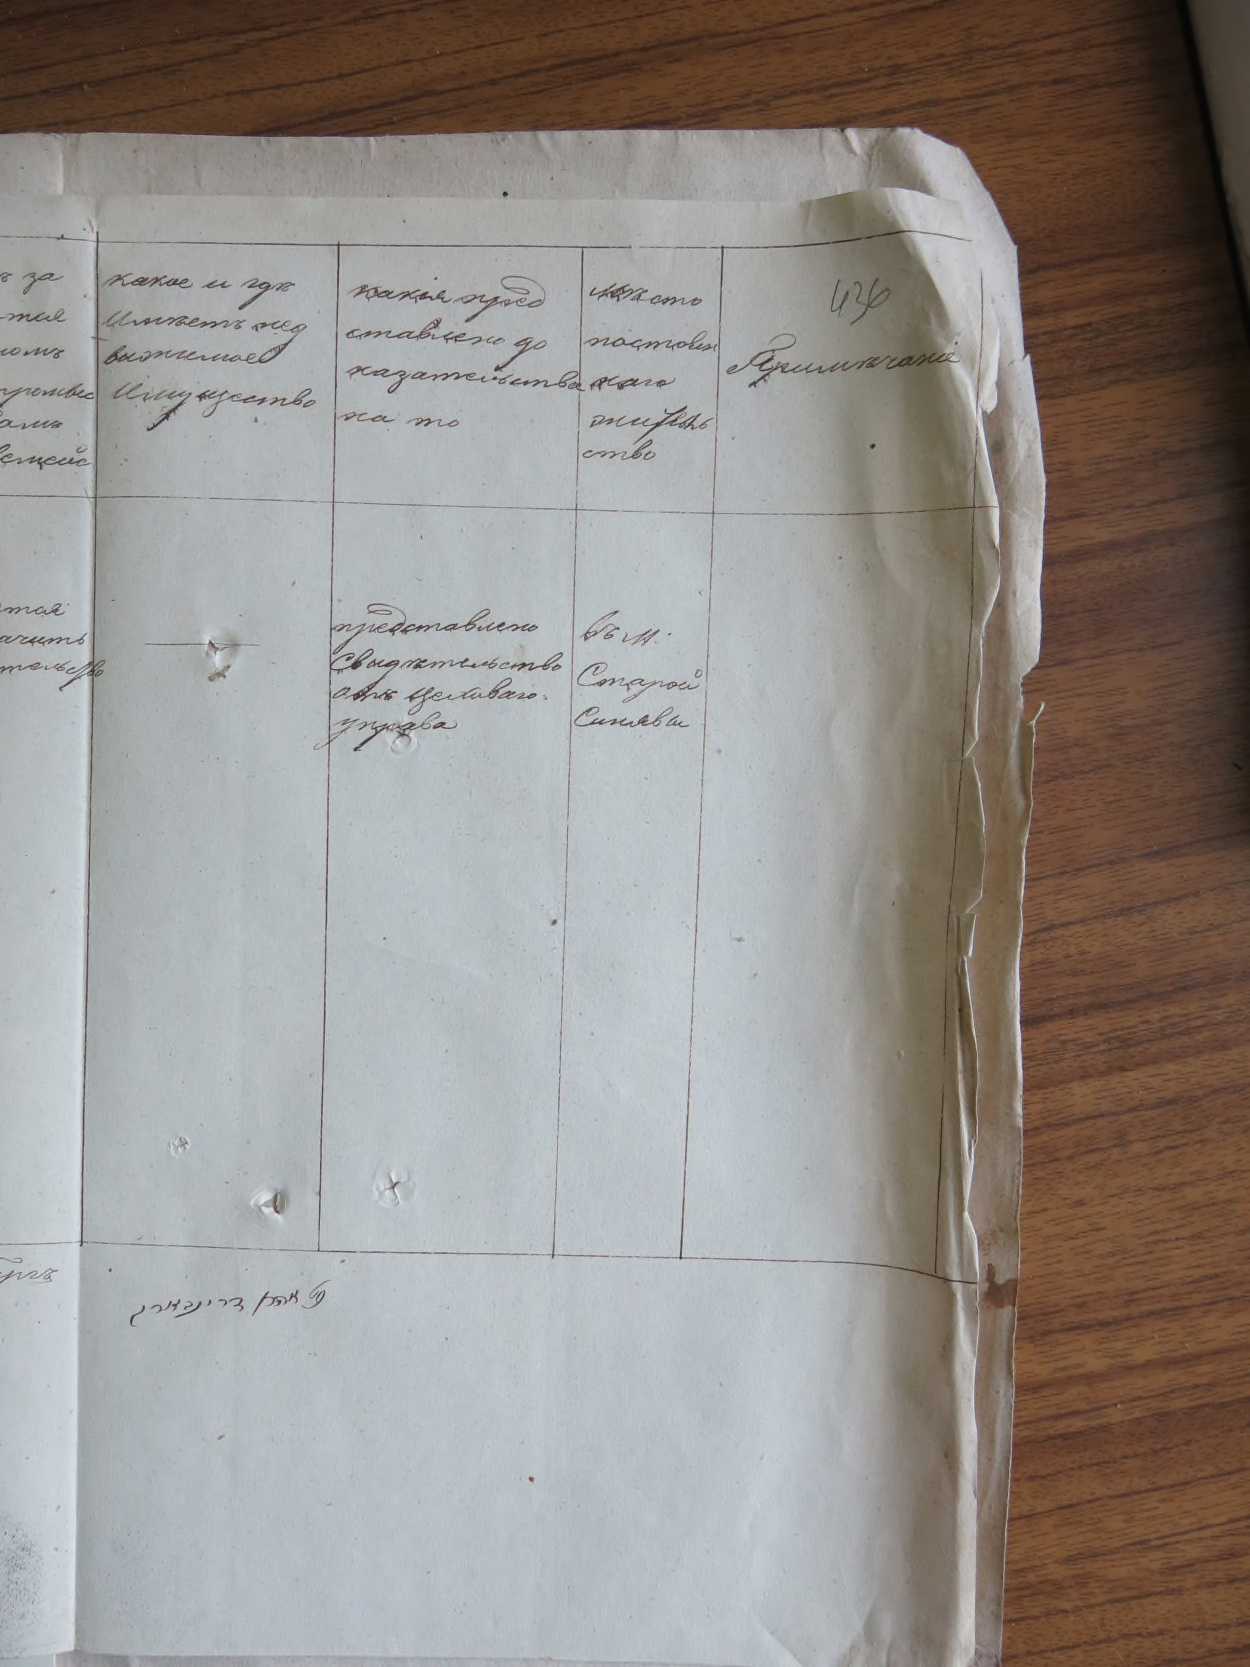 436
ъ за
тая
номъ
промыс
амъ
какое и гдѣ
имѣетъ нед
выжимое
имущество
какія пред
ставлено до
казательства
на то
мѣсто
постоян
наго
житель
ство
Примѣчаніе
тая
ачить
тельство
представлено
свыдѣтельство
отъ цехиваго
управа
въ м.
Старой
Синявы